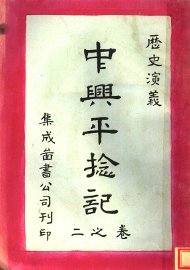 歷史演義
中興平捻記
卷之二
集成啚書公司刊印